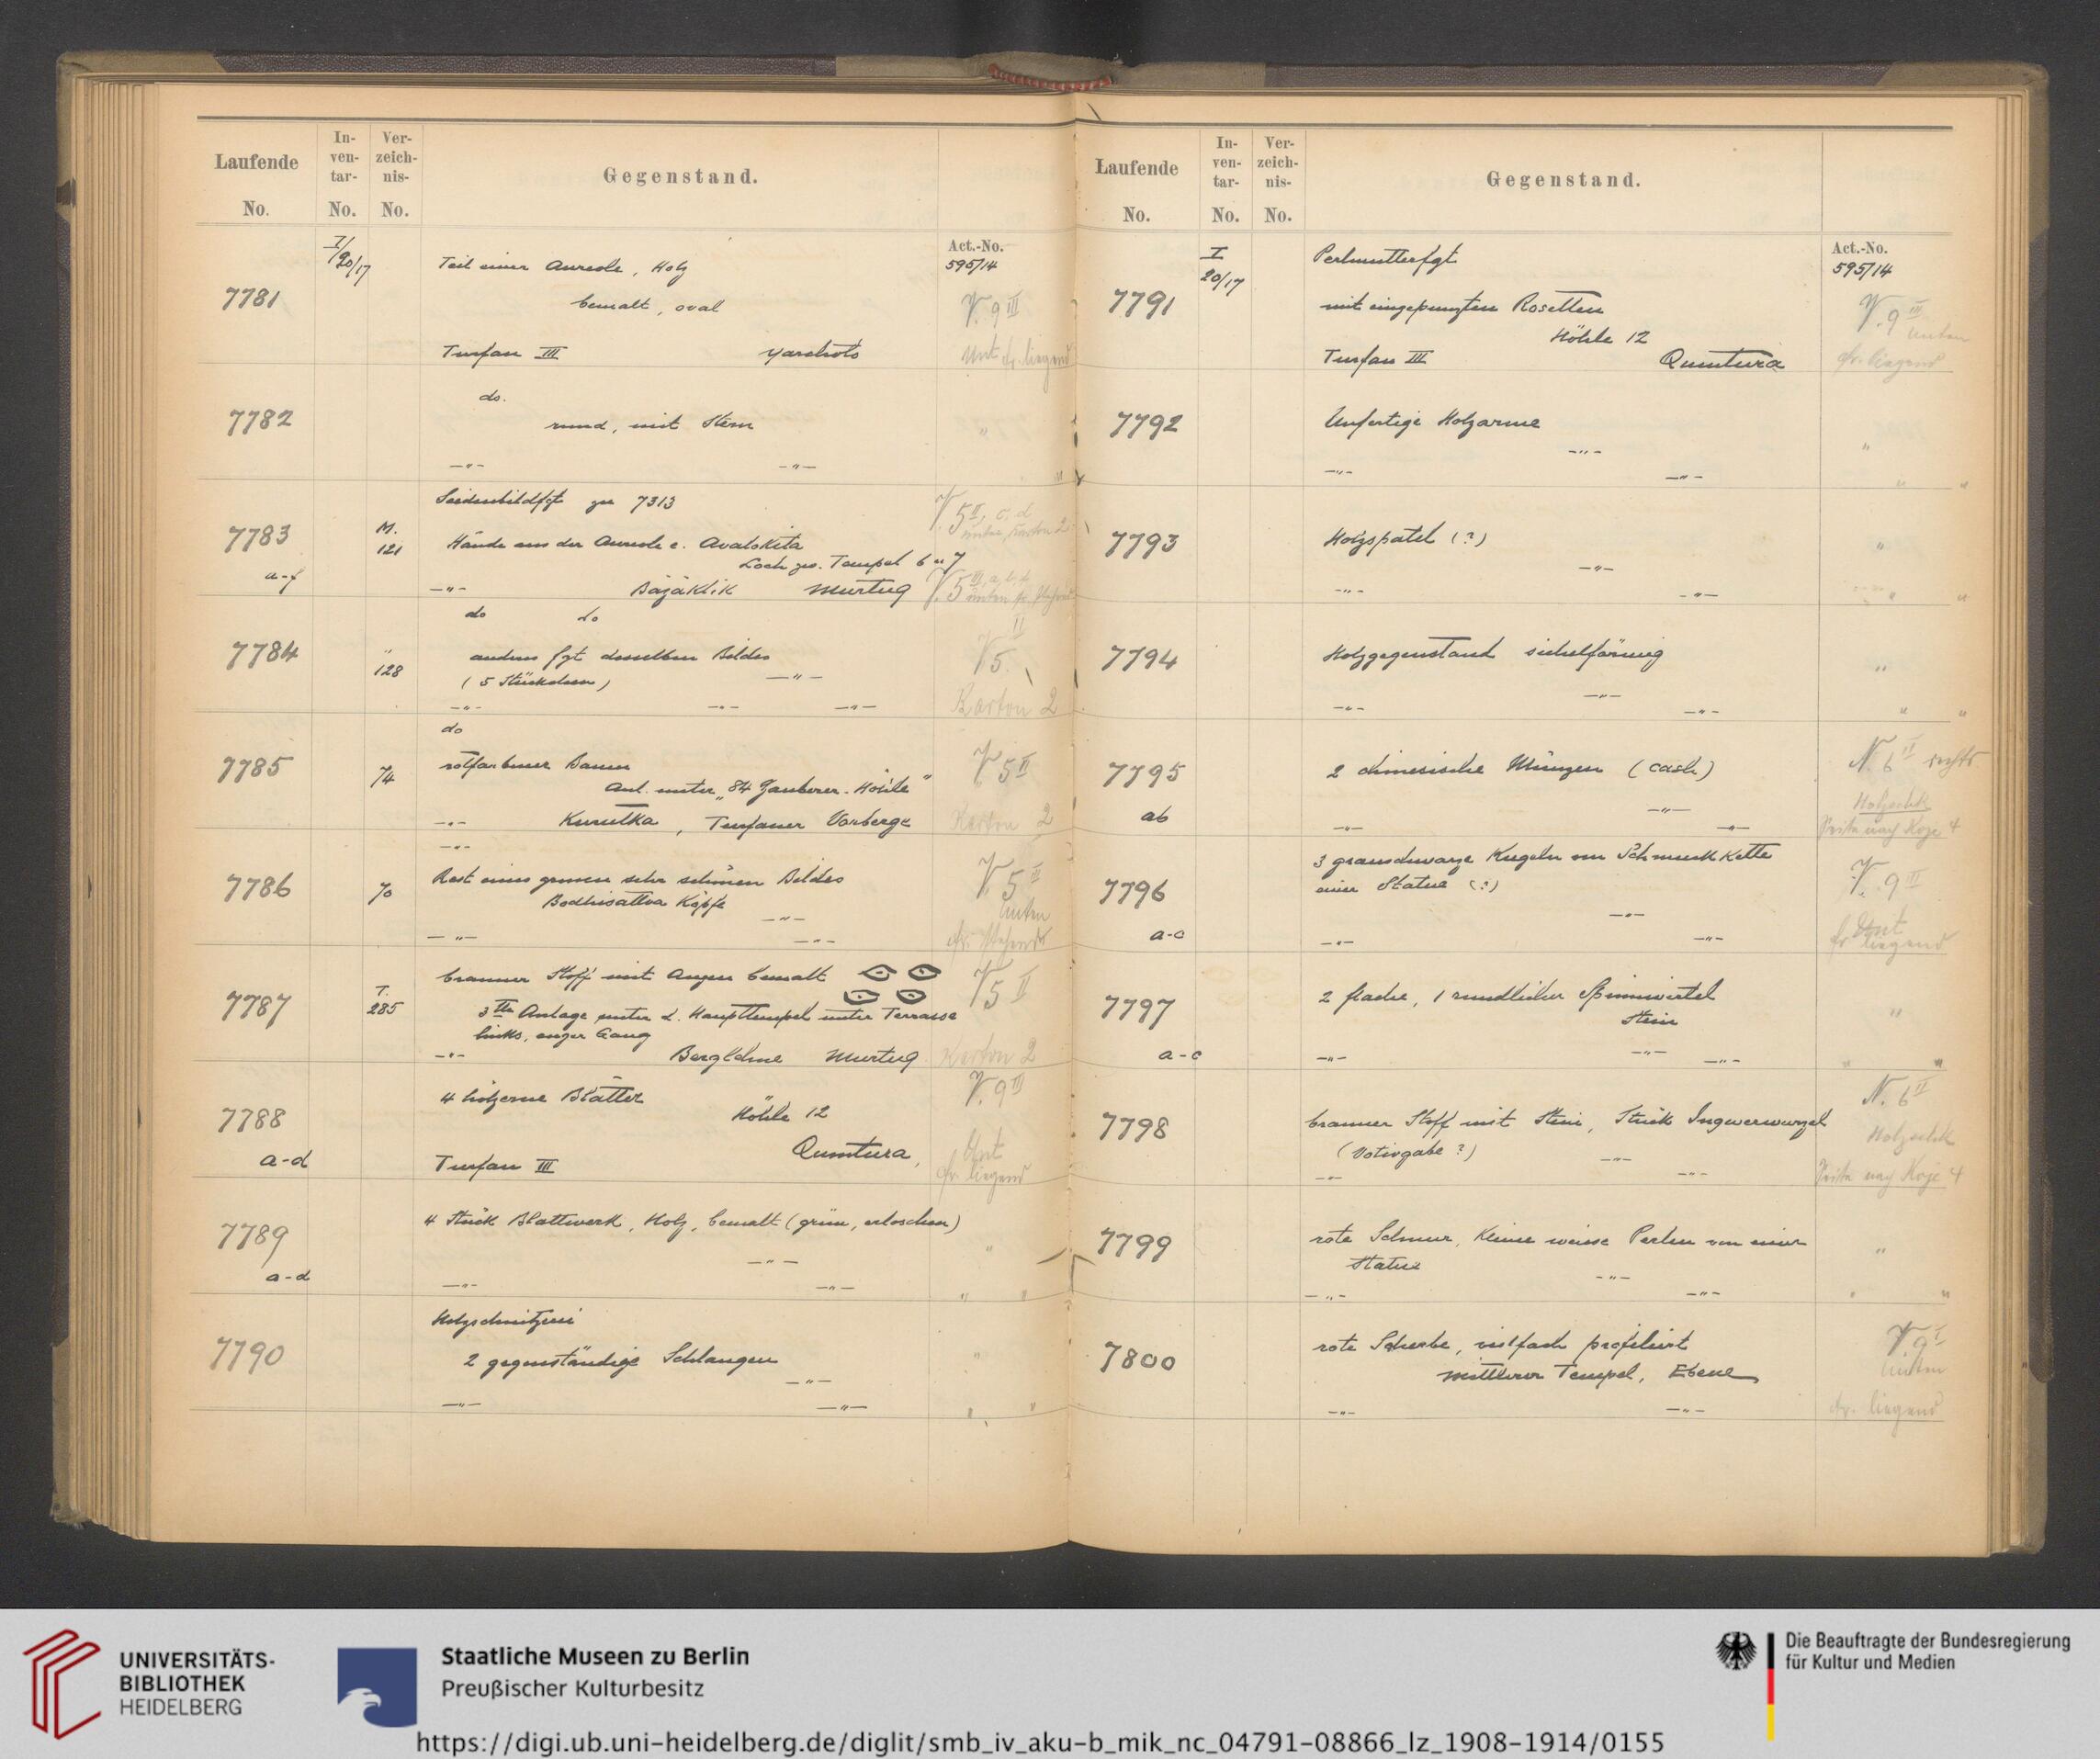 Laufende
No.
In-
ven-
tar-
No.
Ver-
zeich-
nis-
No.
Gegenstand.
Act.-No.
595/14
7781
I/20/17
Teil einer Aureole, Holz
bemalt, oval
Turfan III Yarchoto
V. 9 III
Unt. fr. liegend
7782
do.
rund, mit Stern
—"— —"—
"
"
7783
a-f
M.
121
Seidenbildfgt zu 7313
Hände aus der Aureole e. Avalokita
Loch zw. Tempel 6 u 7
—"— Bäzäklik Murtuq
V. 5 II, c, d
unten, Karton 2
V. 5 III, a, b
unten
7784
"
128
do do
anderes fgt desselben Bildes
(5 Stückchen) —"—
—"— —"— —"—
V 5 II
Karton 2
7785
74
do
rotfarbener Baum
Anl. unter „84 Zauberer-Höhle"
—"— Kurutka, Turfaner Vorberge
V. 5 II
Karton 2
7786
70
—"—
Rest eines grossen sehr schönen Bildes
Bodhisattva Köpfe
—"—
—"— —"—
V. 5 II
unten
fr. stehend
7787
T.
285
brauner Stoff mit Augen bemalt
3te Anlage unter d. Haupttempel unter Terrasse
links, enger Gang
—"— Berglehne Murtuq
V 5 II
Karton 2
7788
a-d
4 hölzerne Blätter
Höhle 12
Turfan III Qumtura,
V. 9 III
Unt.
fr. liegend
7789
a-d
4 Stück Blattwerk, Holz, bemalt (grün, erloschen)
—"—
—"— —"—
"
" "
7790
Holzschnitzerei
2 gegenständige Schlangen
—"—
—"— —"—
"
" "
Laufende
No.
In-
ven-
tar-
No.
Ver-
zeich-
nis-
No.
Gegenstand.
Act.-No.
595/14
7791
I
20/17
Perlmutterfgt
mit eingepunzten Rosetten
Höhle 12
Turfan III Qumtura
V. 9 III
unten
fr. liegend
7792
Unfertige Holzarme
—"—
—"— —"—
"
" "
7793
Holzspatel (?)
—"—
—"— —"—
"
" "
7794
Holzgegenstand sichelförmig
—"—
—"— —"—
"
" "
7795
ab
2 chinesische Münzen (cash)
—"—
—"— —"—
N. 6 II rechts
Holzschk
Seite nach Koje 4
7796
a-c
3 grauschwarze Kugeln von Schmuckkette
einer Statue (?)
—"—
—"— —"—
V. 9 II
Unt.
fr. liegend
7797
a-c
2 flache, 1 rundlicher Spinnwirtel
Stein
—"—
—"— —"—
"
" "
7798
brauner Stoff mit Stein, Stück Ingwerwurzel
(Votivgabe?) —"—
—"— —"—
N. 6 II
Holzschk
Seite nach Koje 4
7799
rote Schnur, kleine weisse Perlen von einer
Statue
—"—
—"— —"—
"
" "
7800
rote Scherbe, vielfach profiliert
mittlerer Tempel, Ebene
—"— —"—
V. 9 I
unten
fr. liegend
UNIVERSITÄTS-
BIBLIOTHEK
HEIDELBERG
Staatliche Museen zu Berlin
Preußischer Kulturbesitz
Die Beauftragte der Bundesregierung
für Kultur und Medien
https://digi.ub.uni-heidelberg.de/diglit/smb_iv_aku-b_mik_nc_04791-08866_lz_1908-1914/0155